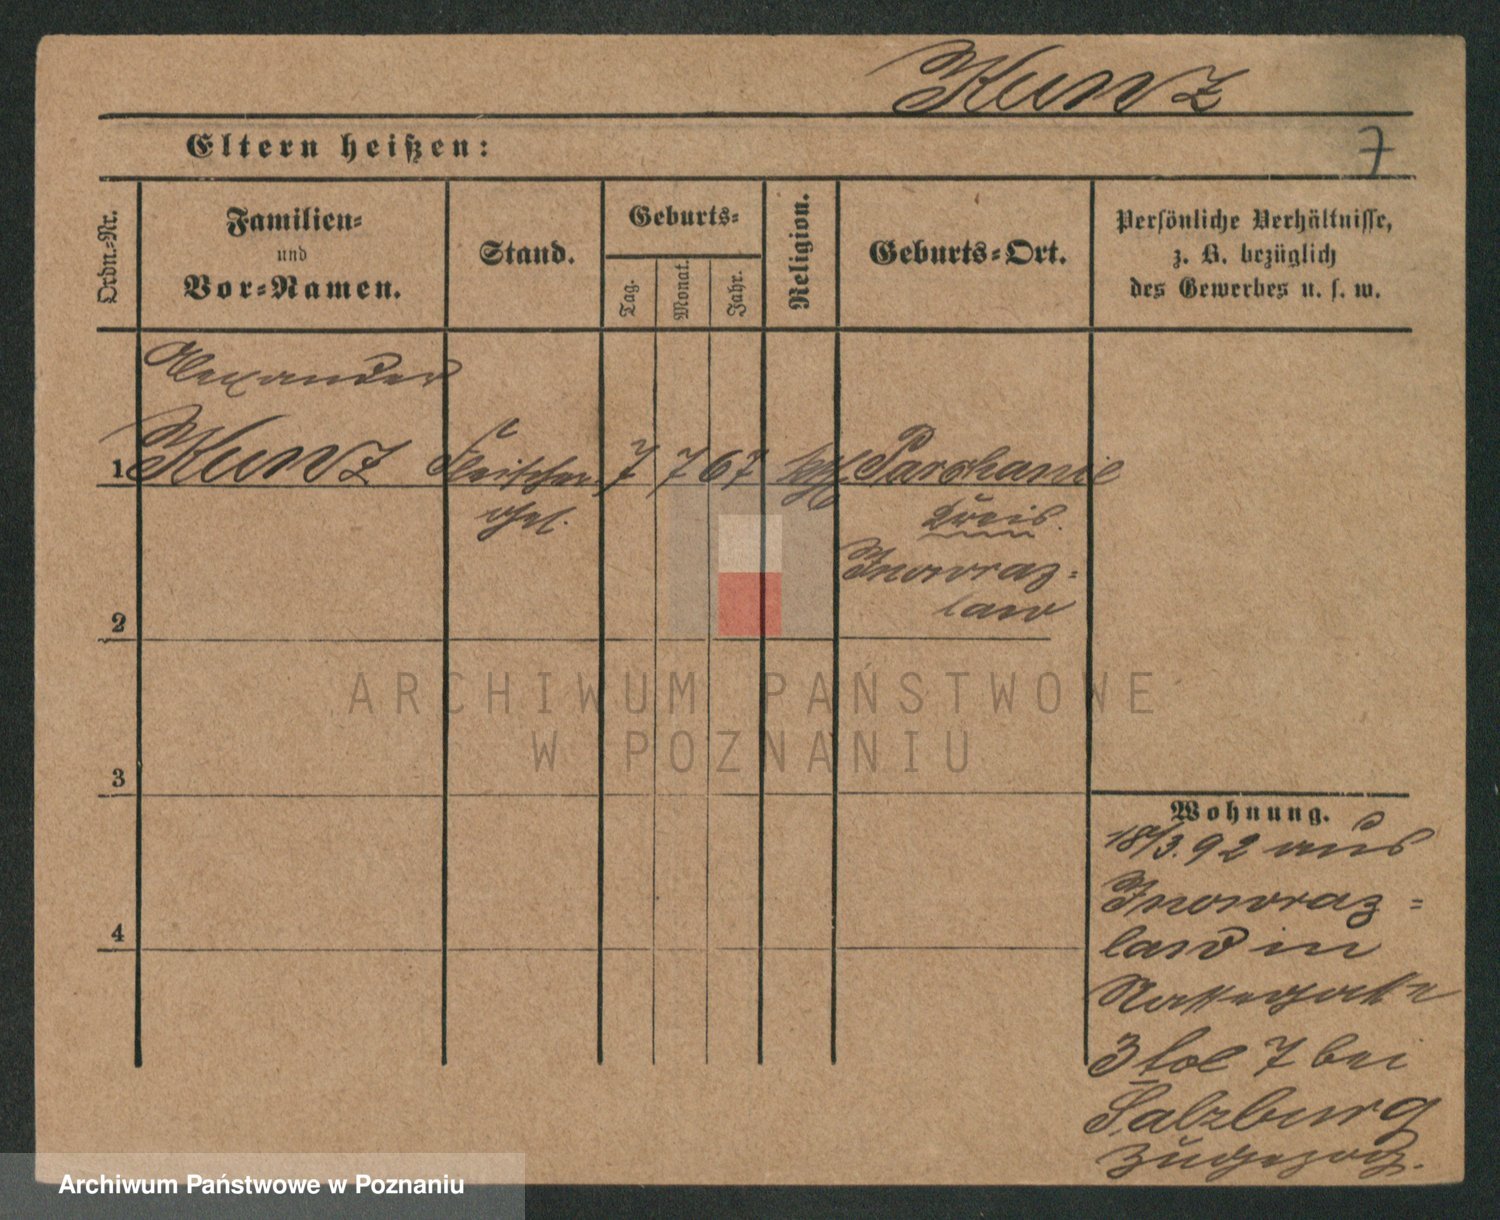 Kunz
Eltern heißen:
7
Ordn.-Nr.
Familien-
und
Vor-Namen.
Stand.
Geburts-
Tag.
Monat.
Jahr.
Religion.
Geburts-Ort.
Persönliche Verhältnisse,
z. B. bezüglich
des Gewerbes u. s. w.
Alexander
1 Kunz Fleischer 7 7 67 kth
Kreis
Inowraz-
law
2
ARCHIWUM PAŃSTWOWE
W POZNANIU
3
Wohnung.
18/3.92 aus
Inowraz-
law in
4
3 fol 7 bei
Salzburg
zugezog.
Archiwum Państwowe w Poznaniu